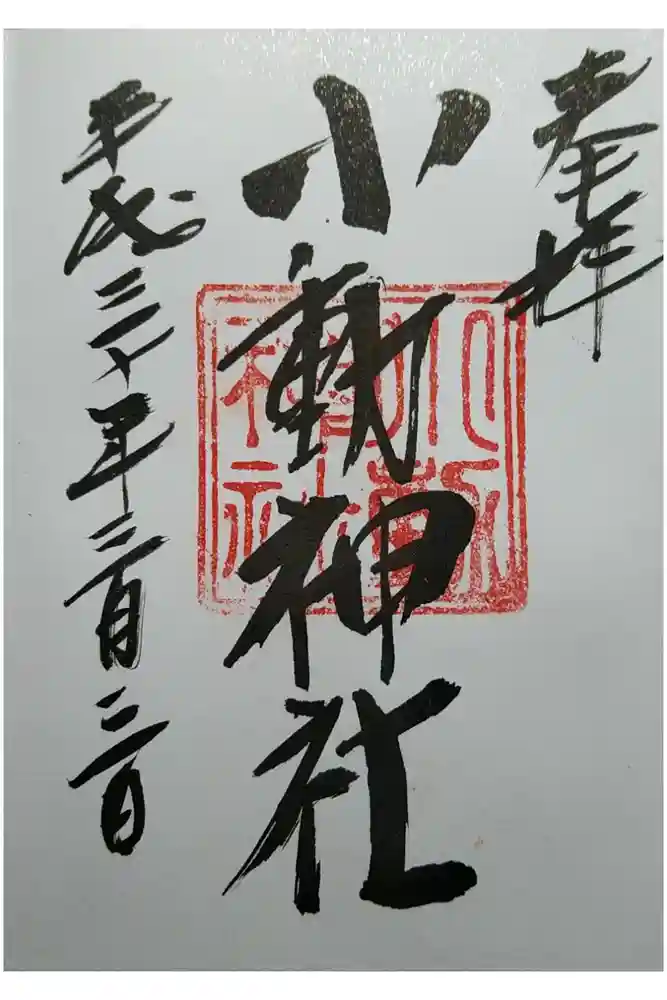 奉拝
小動神社
平成三十年三月三日